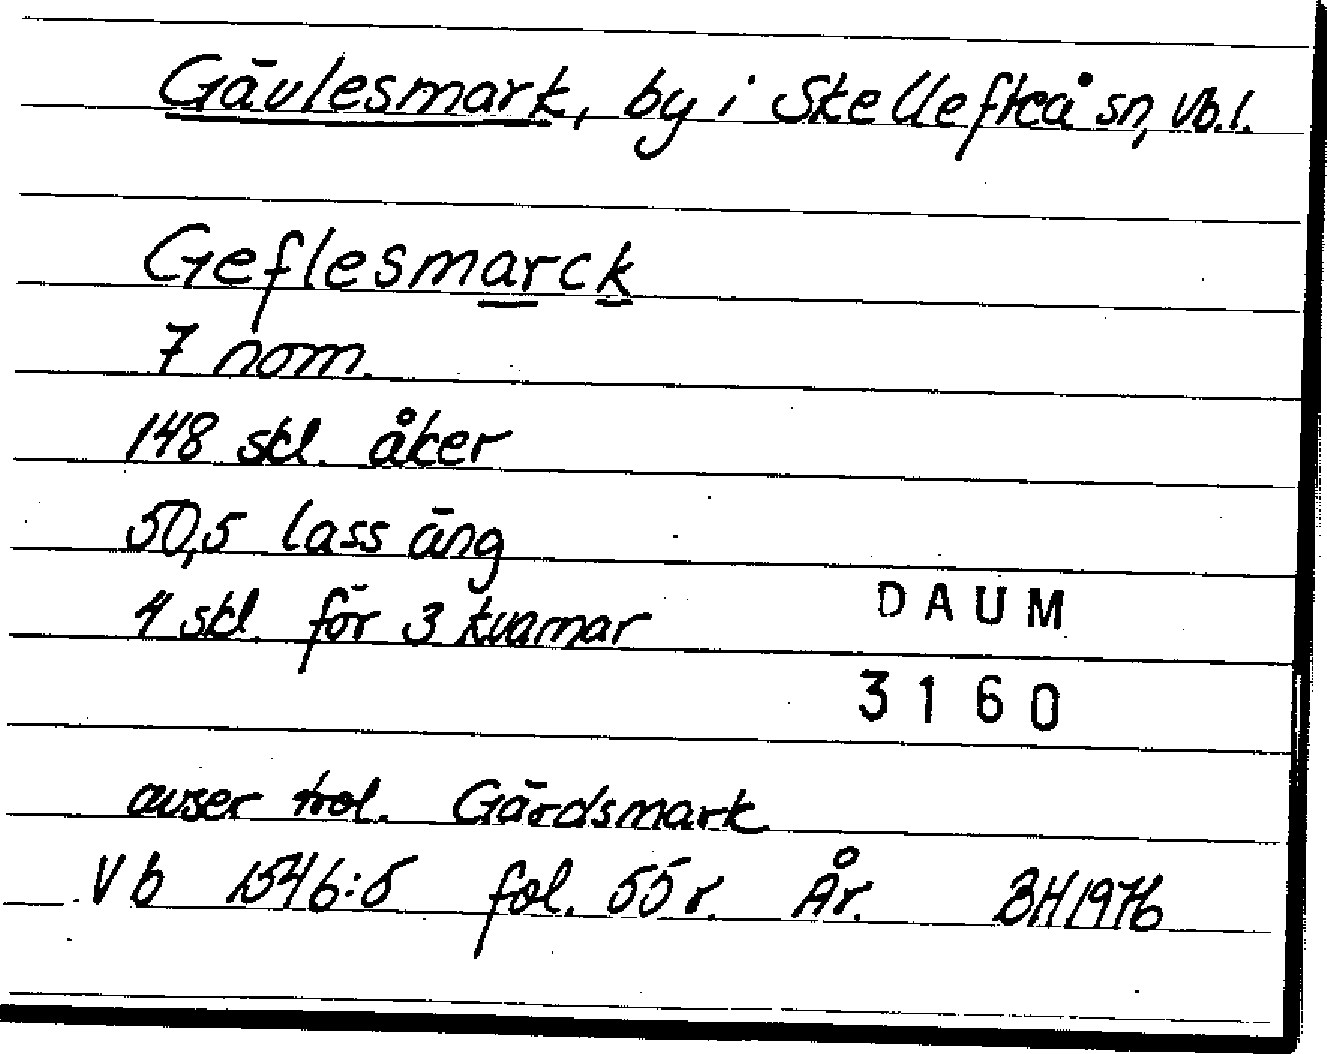 Gävlesmark, by i Skellefteå sn, Vb.l.
Geflesmarck
7 nom.
148 skl. åker
50,5 lass äng
4 skl. för 3 kvarnar
DAUM
3160
avser trol. Gärdsmark
Vb 1546:5 fol. 55 r. År. BH1976